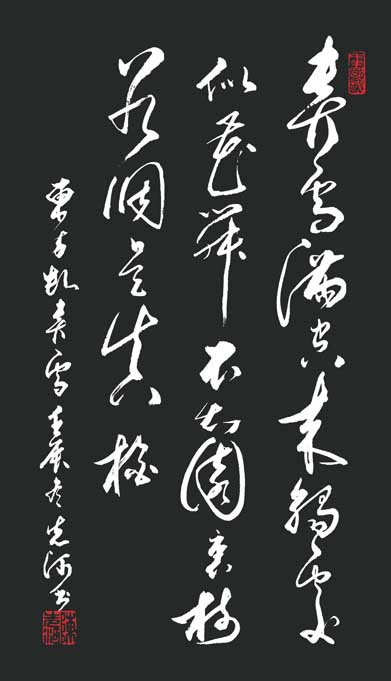 春雪滿空來觸處
似花開不知園裏樹
若個是真梅
東方虬春雪 壬寅冬 先河书